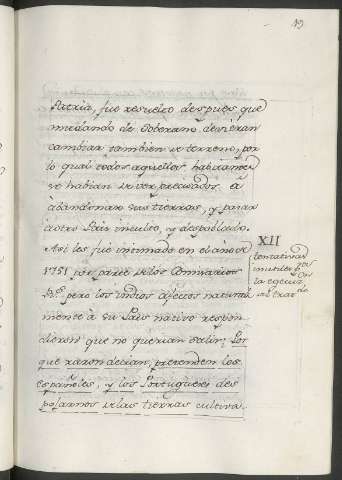 49
Patria, fue resuelto despues que
mudando de Soberano devieran
cambiar tambien de terreno, por
lo qual todos aquellos habitantes
se habian de ver precisados à
abandonar sus tierras, y pasar
à otro Pais inculto, y despoblado.
Asi les fue intimado en el año de
1751 por parte de los Comisarios
R.s pero los indios afectos natural
mente à su Pais nativo respon
dieron que no querian salir; Por
que razon decian, pretenden los
españoles, y los Portugueses des
pojarnos de las tierras cultiva
XII
tentativas
inutiles p.a
la egecuz.
del trata